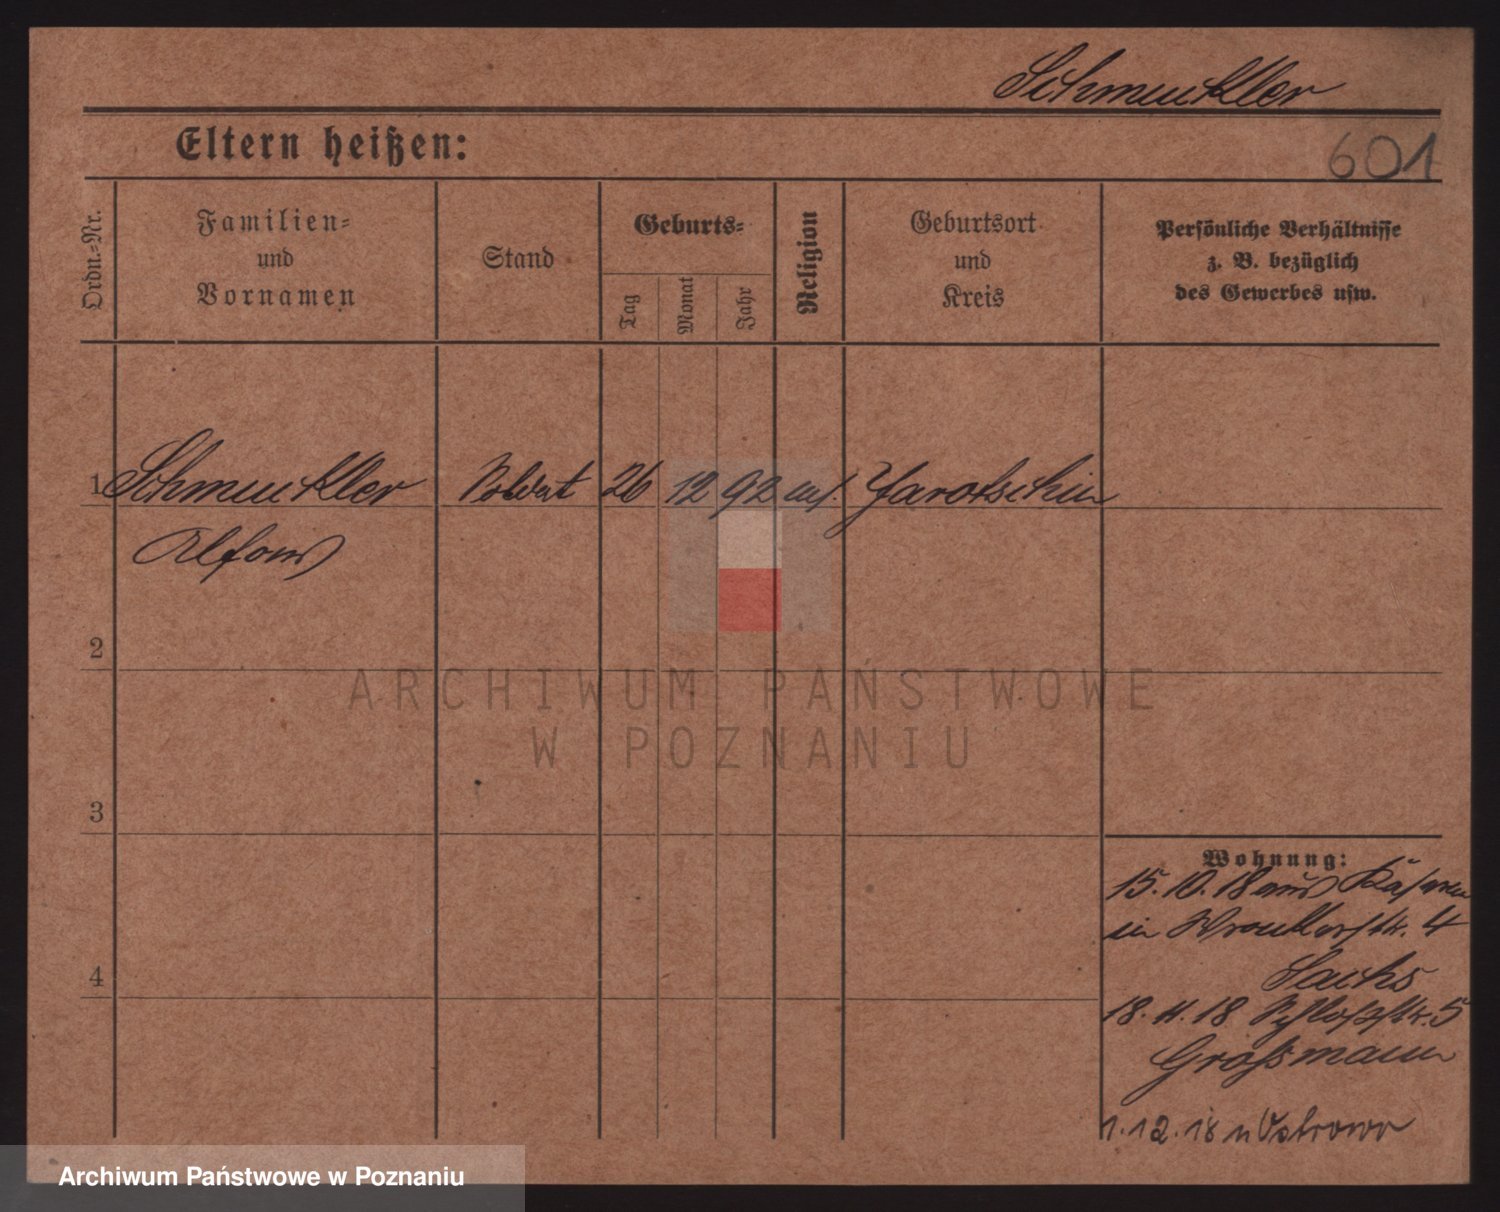 Schmuckler
Eltern heißen:
601
Ordn.-Nr.
Familien-
und
Vornamen
Stand
Geburts-
Tag
Monat
Jahr
Religion
Geburtsort
und
Kreis
Persönliche Verhältnisse
z. B. bezüglich
des Gewerbes usw.
1 Schmuckler Soldat 26 12 92 Jarotschin
Alfons
2
3
4
Wohnung:
15. 10. 18 aus
in 4
Sachs
18. 11. 18 Schloßstr. 5
Großmann
1. 12. 18 n Ostrowo
ARCHIWUM PAŃSTWOWE
W POZNANIU
Archiwum Państwowe w Poznaniu